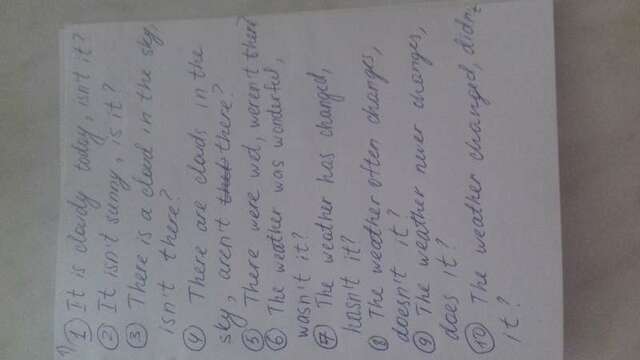 1)
① It is cloudy today, isn't it?
② It isn't sunny, is it?
③ There is a cloud in the sky,
isn't there?
④ There are clouds in the
sky, aren't there?
⑤ There were wd, weren't there
⑥ The weather was wonderful,
wasn't it?
⑦ The weather has changed,
hasn't it?
⑧ The weather often changes,
doesn't it?
⑨ The weather never changes,
does it?
⑩ The weather changed, didn't
it?